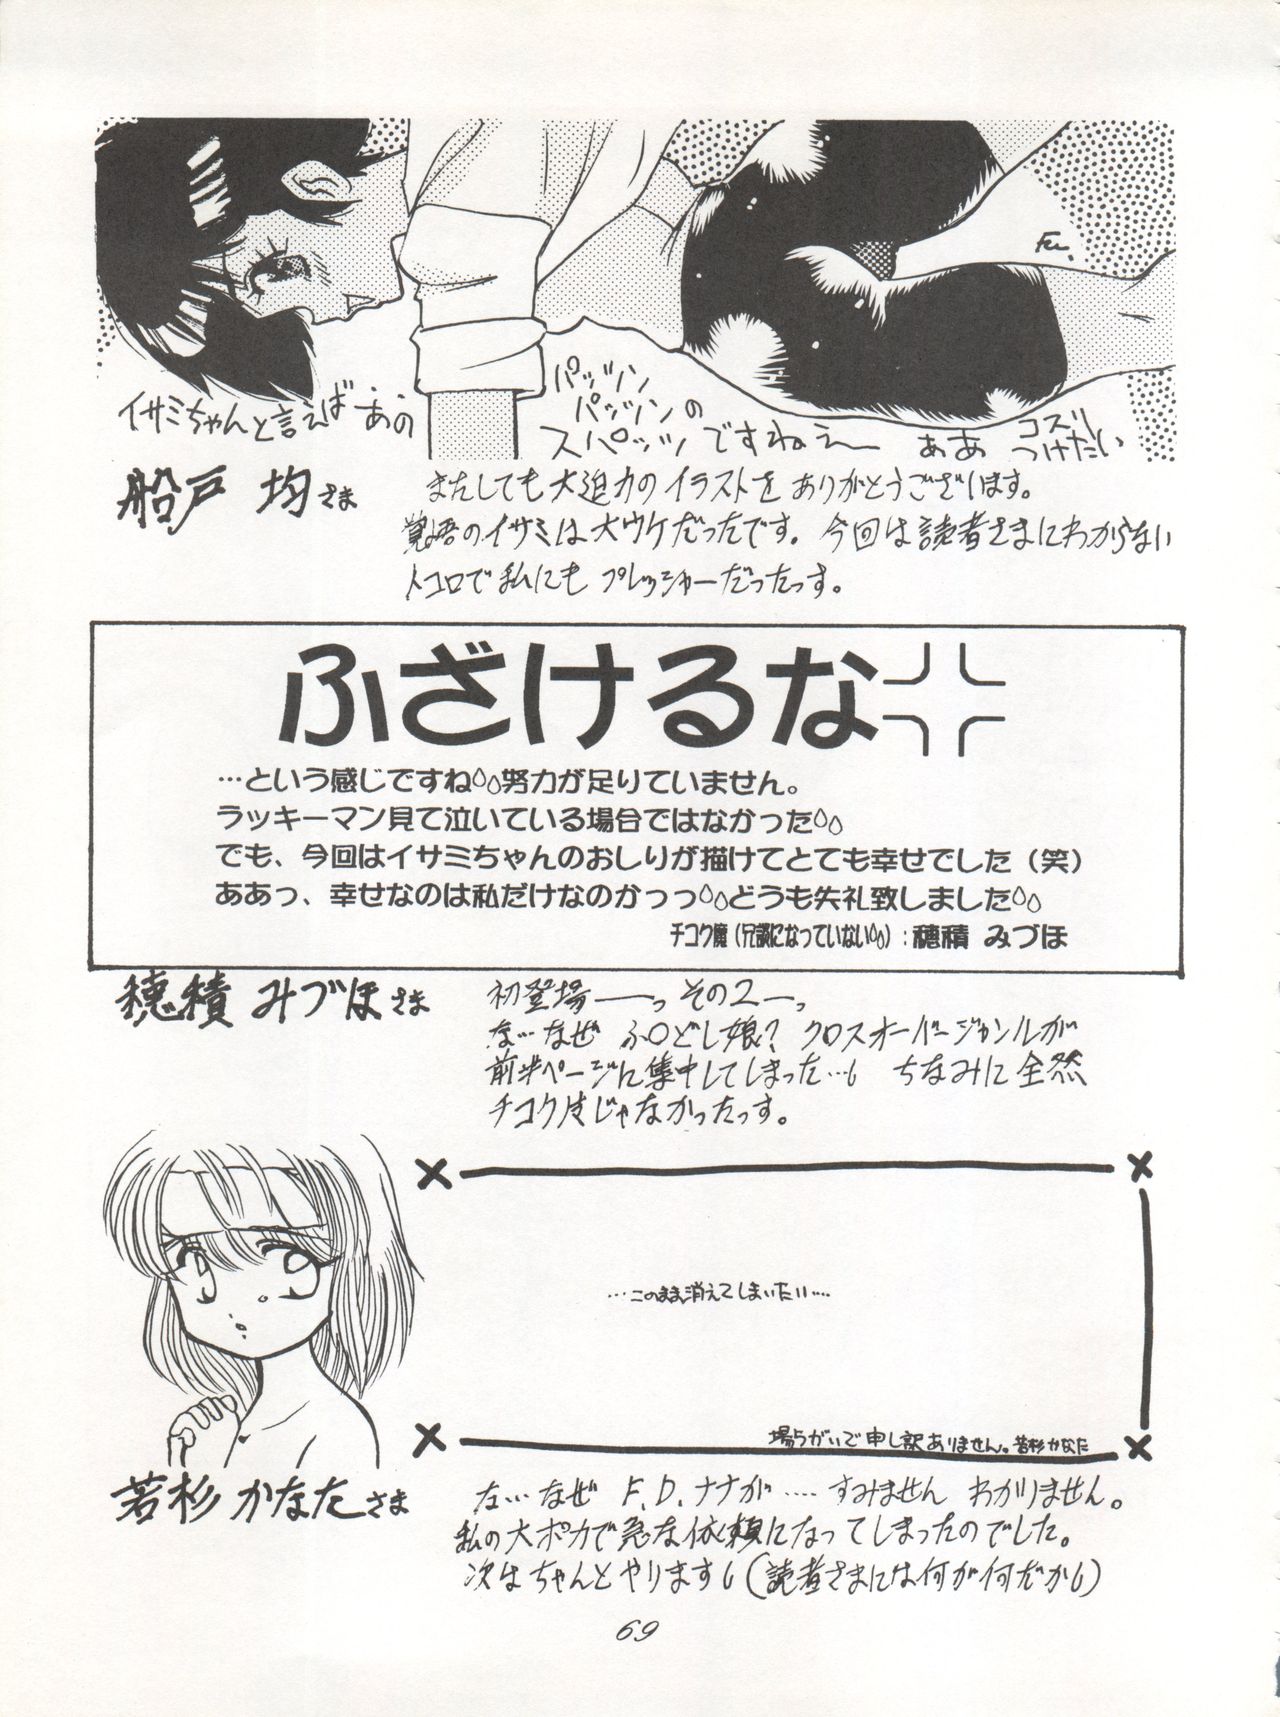 Fu.
イサミちゃんと言えば あの
パッツン
パッツンの
スパッツ ですねぇー
ああ コスリ
つけたい
船戸 均さま
またしても大迫力のイラストを ありがとうございます。
覚悟のイサミは大ウケだったです。今回は読者さまにわからない
トコロで私にも プレッシャーだったっす。
ふざけるな
…という感じですね努力が足りていません。
ラッキーマン見て泣いている場合ではなかった
でも、今回はイサミちゃんのおしりが描けてとても幸せでした（笑）
ああっ、幸せなのは私だけなのかっっどうも失礼致しました
チコク魔（冗談になっていない）：穂積 みづほ
穂積 みづほさま
初登場──っ その2─っ
な…なぜ ふ○どし娘？ クロスオーバージャンルが
前半ページに集中してしまった… ちなみに全然
チコクじゃなかったっす。
…このまま消えてしまいたい…‥
場ちがいで申し訳ありません。若杉かなた
若杉 かなたさま
な…なぜ F.D.ナナが‥‥ すみません わかりません。
私の大ポカで急な依頼になってしまったのでした。
次はちゃんとやります（読者さまには何が何だか）
69